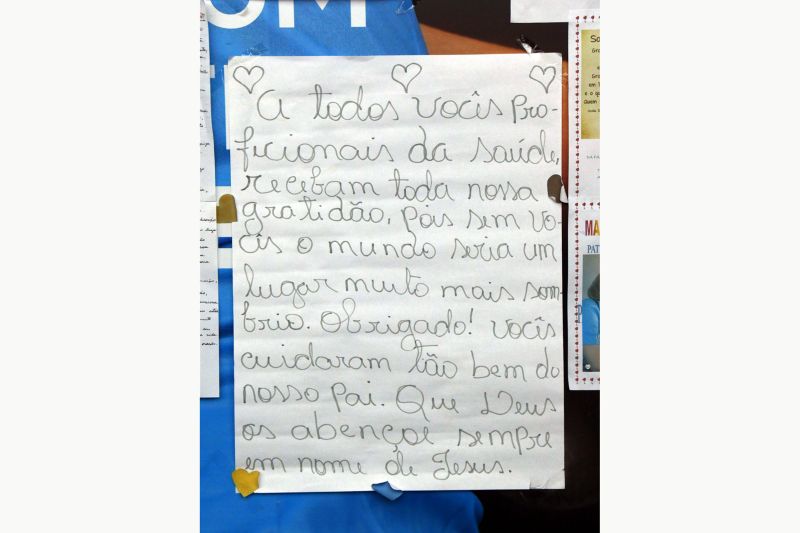 OM
A todos vocês pro-
ficionais da saúde,
recebam toda nossa
gratidão, pois sem vo-
cês o mundo seria um
lugar muito mais som-
brio. Obrigado! vocês
cuidaram tão bem do
nosso pai. Que Deus
os abençoe sempre
em nome de Jesus.
MA
PAT